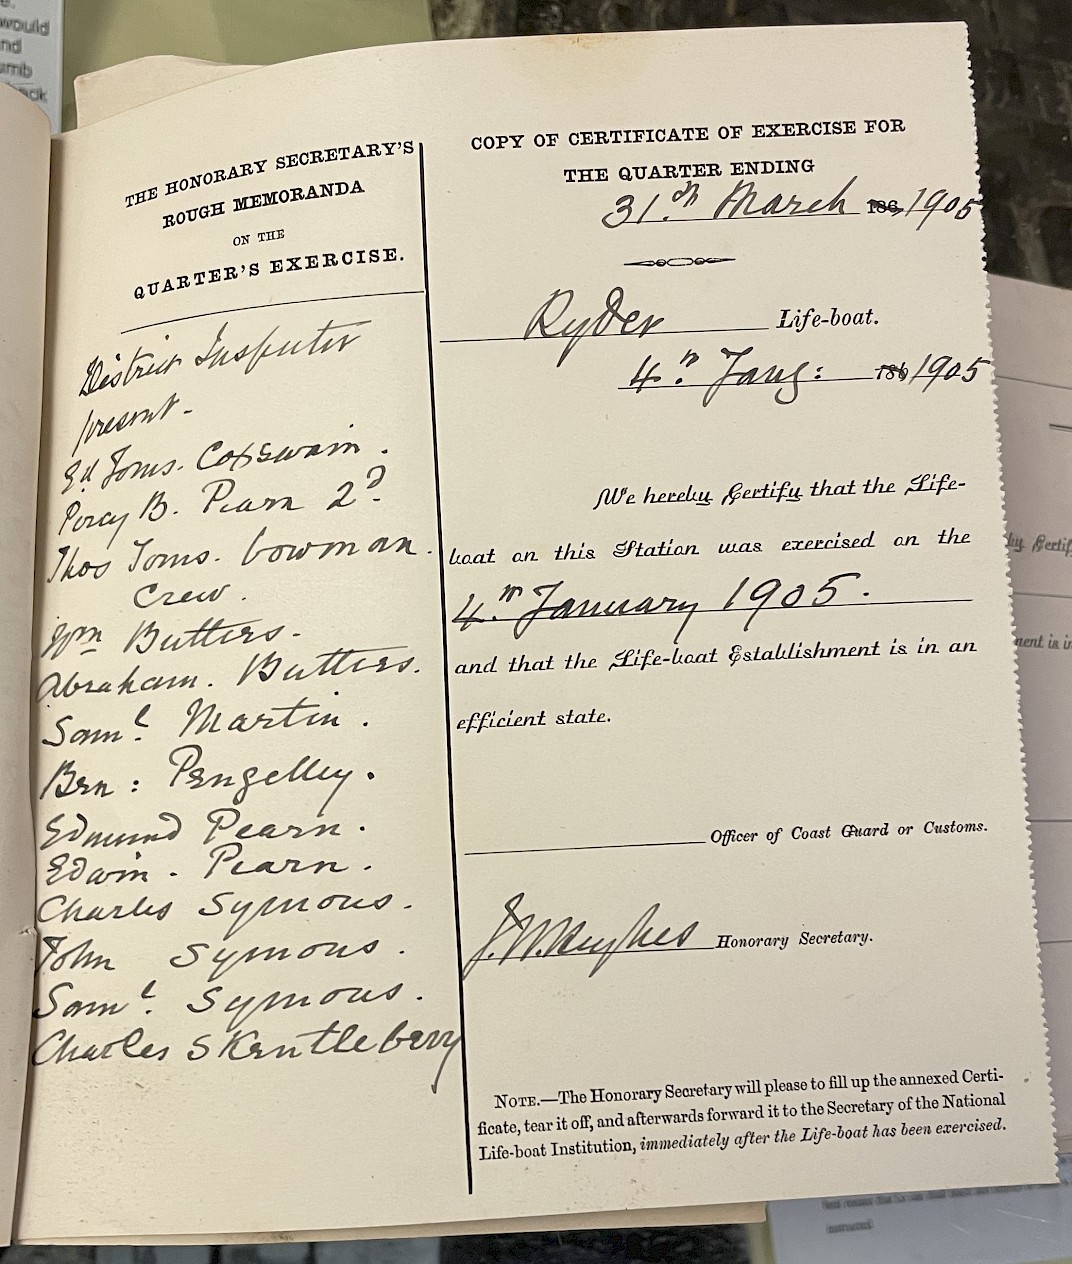 would
nd
THE HONORARY SECRETARY'S
ROUGH MEMORANDA
ON THE
QUARTER'S EXERCISE.
District Inspector
present.
Ed Toms. Coxswain.
Percy B. Pearn 2d
Thos Toms. bowman.
Crew.
Wm Butters.
Abraham. Butters.
Saml. Martin.
Ben: Pengelley.
Edmund Pearn.
Edwin. Pearn.
Charles Symons.
John Symons.
Saml. Symons.
Charles Skentleberry
COPY OF CERTIFICATE OF EXERCISE FOR
THE QUARTER ENDING
31.st March 186 1905
Ryder Life-boat.
4.th Jany: 186 1905
We hereby Certify that the Life-
boat on this Station was exercised on the
4.th January 1905.
and that the Life-boat Establishment is in an
efficient state.
Officer of Coast Guard or Customs.
Honorary Secretary.
NOTE.—The Honorary Secretary will please to fill up the annexed Certi-
ficate, tear it off, and afterwards forward it to the Secretary of the National
Life-boat Institution, immediately after the Life-boat has been exercised.